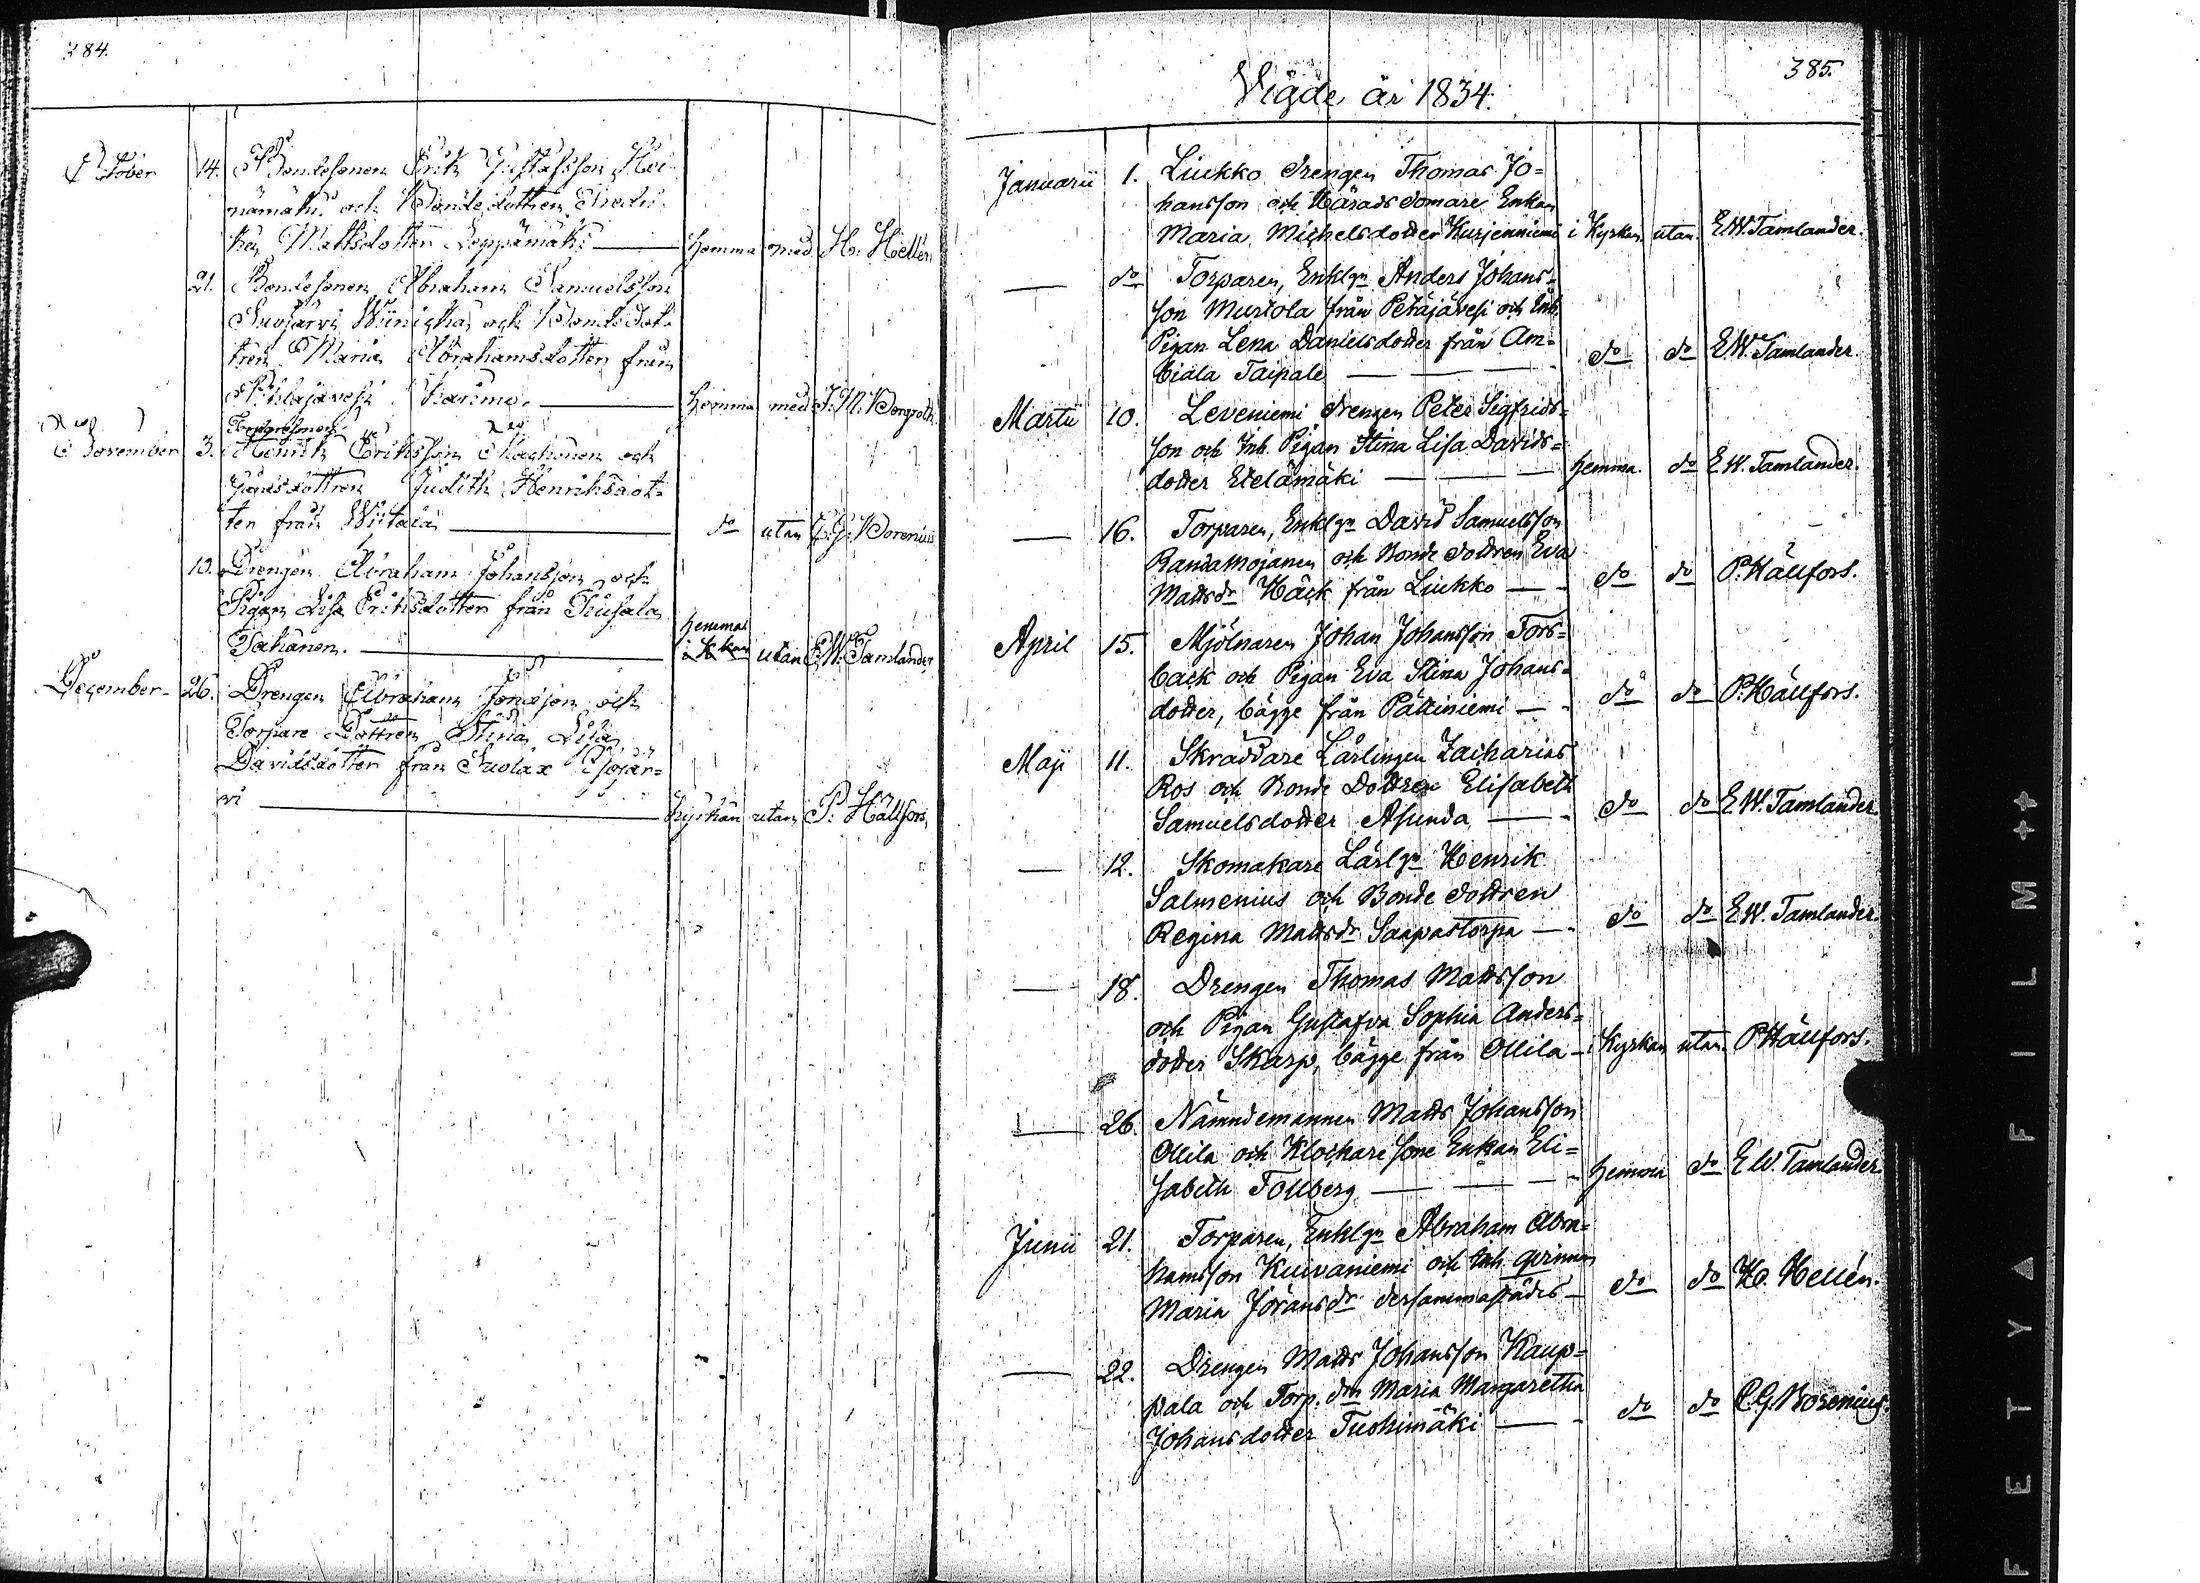 384.
October 14. Bondesonen Erik Gustafsson Hei-
nämäki och Bondedottren Fredri-
ka Mattsdotter Leppämäki — hemma med H. Hellén
21. Bondesonen Abraham Samuelsson
Suojärvi och Bondedot-
tren Maria Abrahamsdotter från
Pihlajavesi — hemma med
Torparesonen
November 3. Henrik Eriksson och
Judith Henriksdot-
ter från Wiitala — do utan C.G. Borenius
Drengen Abraham Johansson och
Pigan Lisa Eriksdotter från
hemma
— i Kkan utan E.W. Tamlander
December 26. Drengen Abraham Jonasson och
Torpare Dottren Stina Lisa
Davidsdotter från
vi — kyrkan utan P. Hällfors.
385.
Vigde år 1834.
Januarii 1. Liukko drengen Thomas Jo=
hansson och Härads domare Enkan
Maria Michelsdotter Kurjenniemi i Kyrkan utan E.W. Tamlander.
— do Torparen, Enklgn Anders Johans=
son Murtola från Petäjävesi och Inh.
Pigan Lena Danielsdotter från Am=
biala Taipale — do do E.W. Tamlander.
Martii 10. Leveniemi drengen Peter Sigfrids=
son och Inh. Pigan Stina Lisa Davids=
dotter Etelämäki — hemma. do E.W. Tamlander.
— 16. Torparen, Enklgn David Samuelsson
Randamojanen och Bonde dottren Eva
Mattsdr Häck från Liukko — do do P. Hällfors.
April 15. Mjölnaren Johan Johansson Fors=
back och Pigan Eva Stina Johans=
dotter, bägge från Pättiniemi — do do P. Hällfors.
Maji 11. Skräddare Lärlingen Zacharias
Ros och Bonde Dottren Elisabeth
Samuelsdotter Asunda — do do E.W. Tamlander.
— 12. Skomakare Lärlgn Henrik
Salmenius och Bonde dottren
Regina Mattsdr Saapastorpa — do do E.W. Tamlander.
— 18. Drengen Thomas Mattsson
och Pigan Gustafva Sophia Anders=
dotter Skarp, bägge från Ollila — i Kyrkan utan. P Hällfors.
— 26. Nämndemannen Matts Johansson
Ollila och Klockare sone Enkan Eli=
sabeth Tollberg — hemma do E W. Tamlander.
Junii 21. Torparen, Enklgn Abraham Abra=
hamsson Kuivaniemi och Inh. qvinnan
Maria Jöransdr dersammastädes — do do H. Hellén.
— 22. Drengen Matts Johansson Kaup=
pala och Torp. drn Maria Margaretha
Johansdotter Tuohimäki — do do C.G. Borenius.
FETYA FILM ++